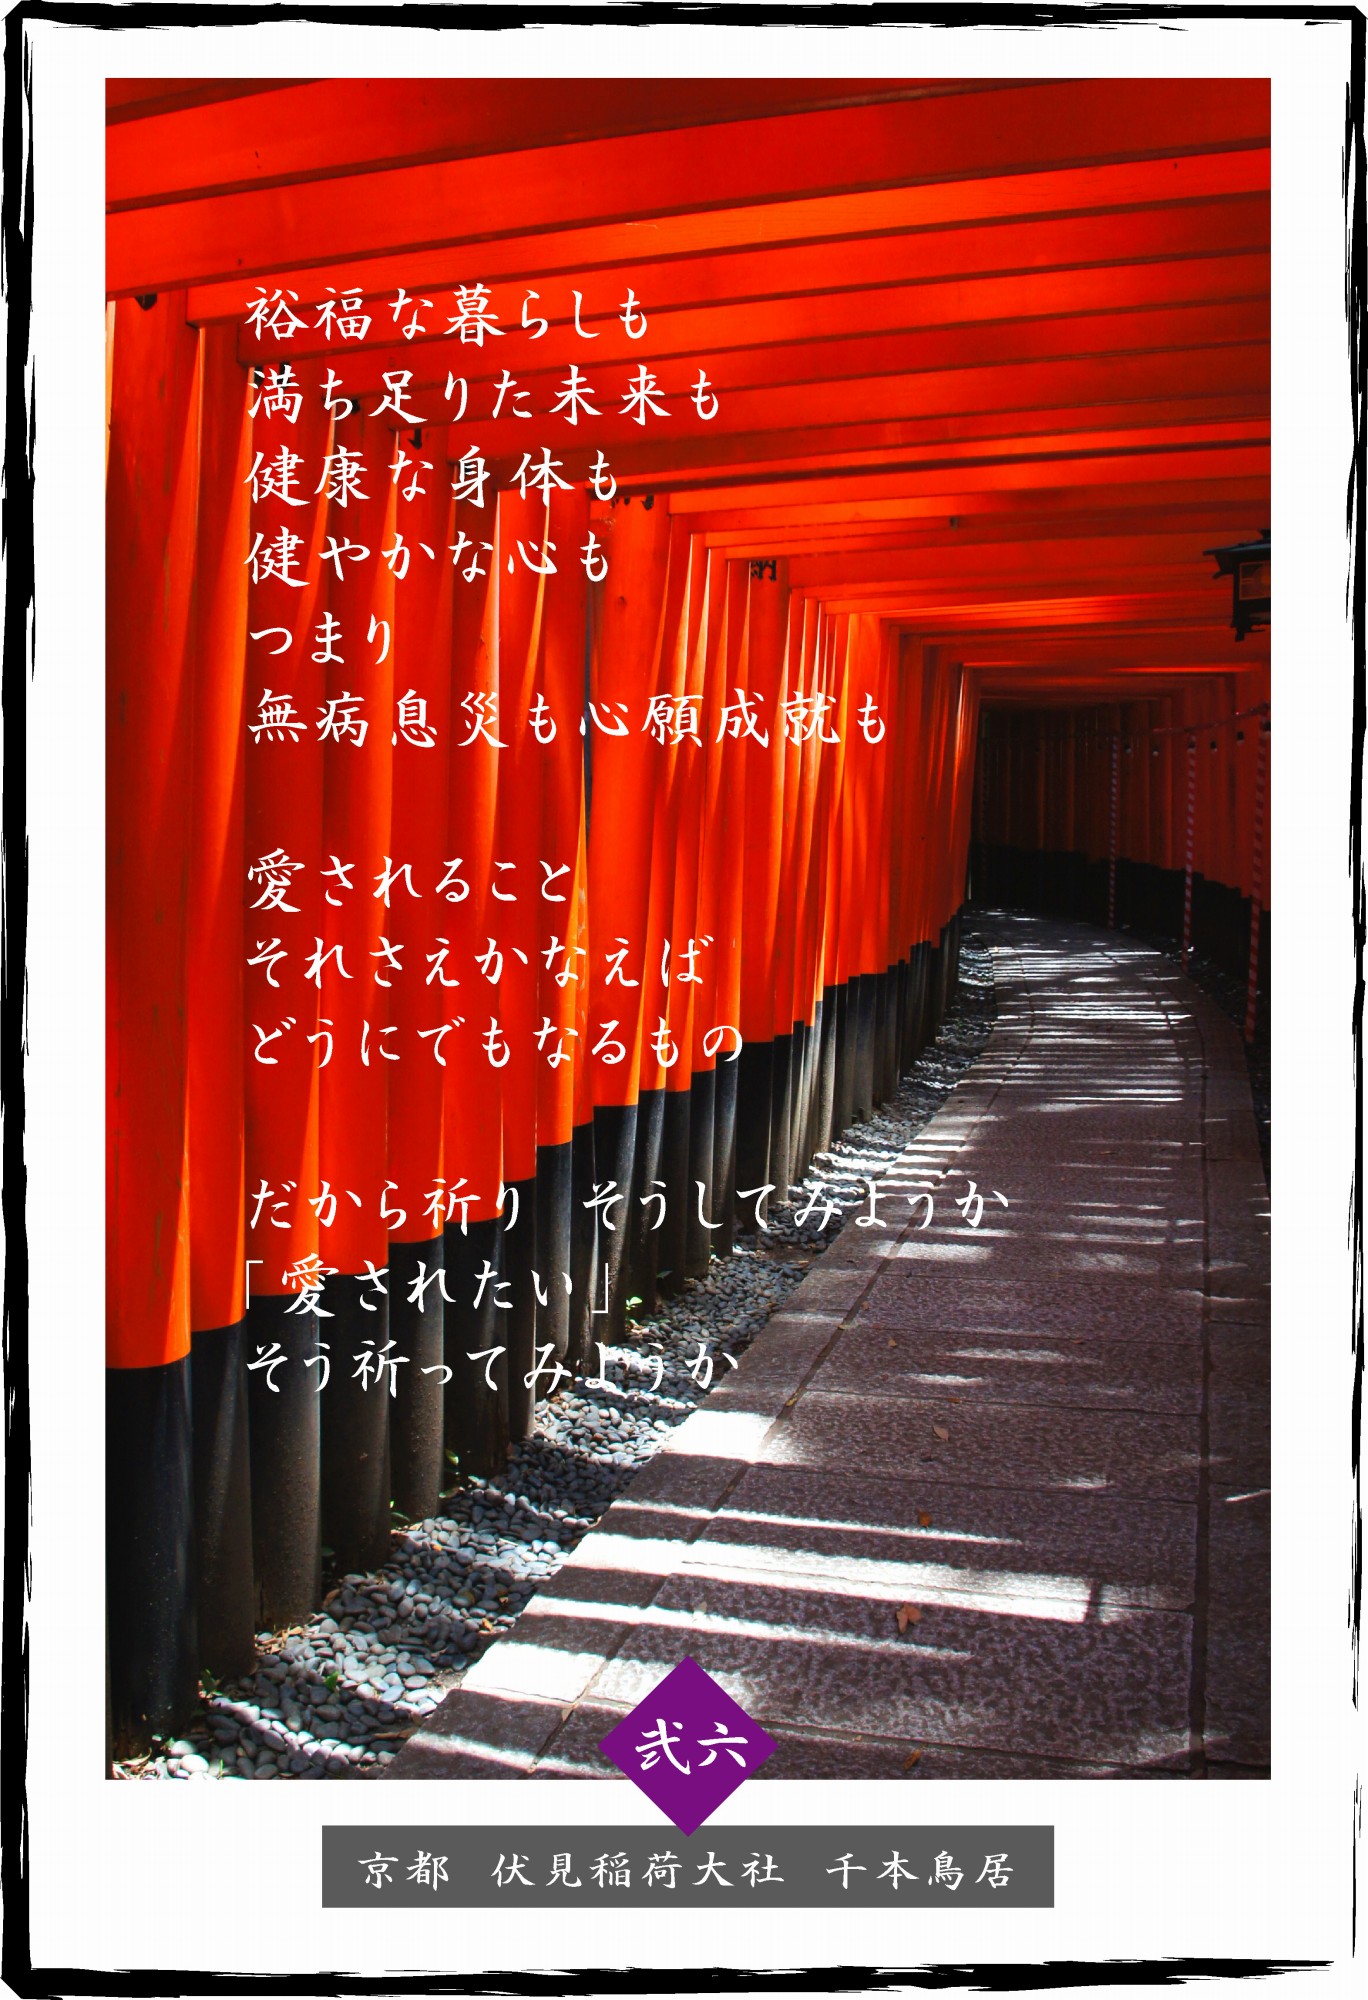 裕福な暮らしも
満ち足りた未来も
健康な身体も
健やかな心も
つまり
無病息災も心願成就も
愛されること
それさえかなえば
どうにでもなるもの
だから祈り　そうしてみようか
「愛されたい」
そう祈ってみようか
弐六
京都　伏見稲荷大社　千本鳥居